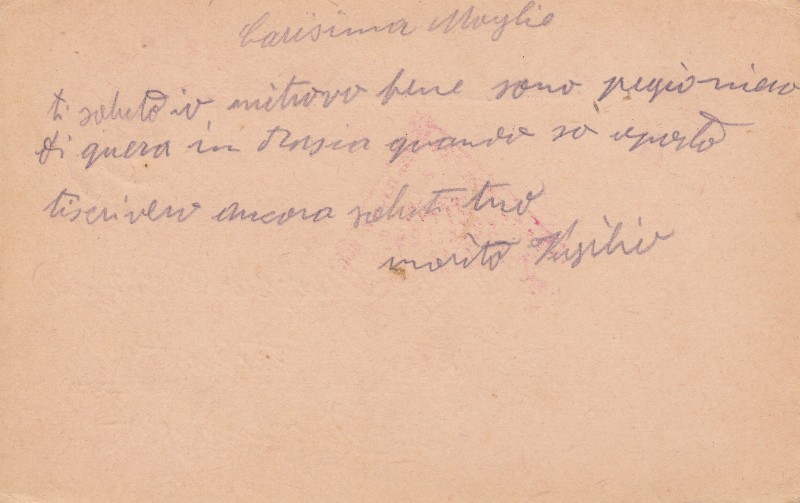 Carisima Moglie
ti saluto io mitrovo bene sono pregioniero
di guera in Rosia quando sò aposto
tiscrivero ancora saluti tuo
marito Virgilio